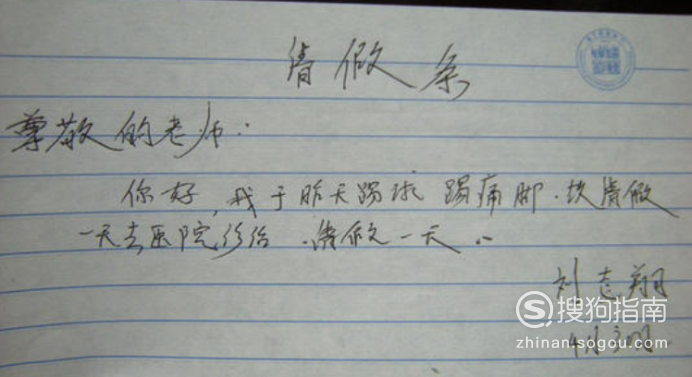 请假条
尊敬的老师:
你好,我于昨天踢球踢痛脚.故请假
一天去医院诊治.请假一天。
刘志翔
搜狗指南
zhinan.sogou.com